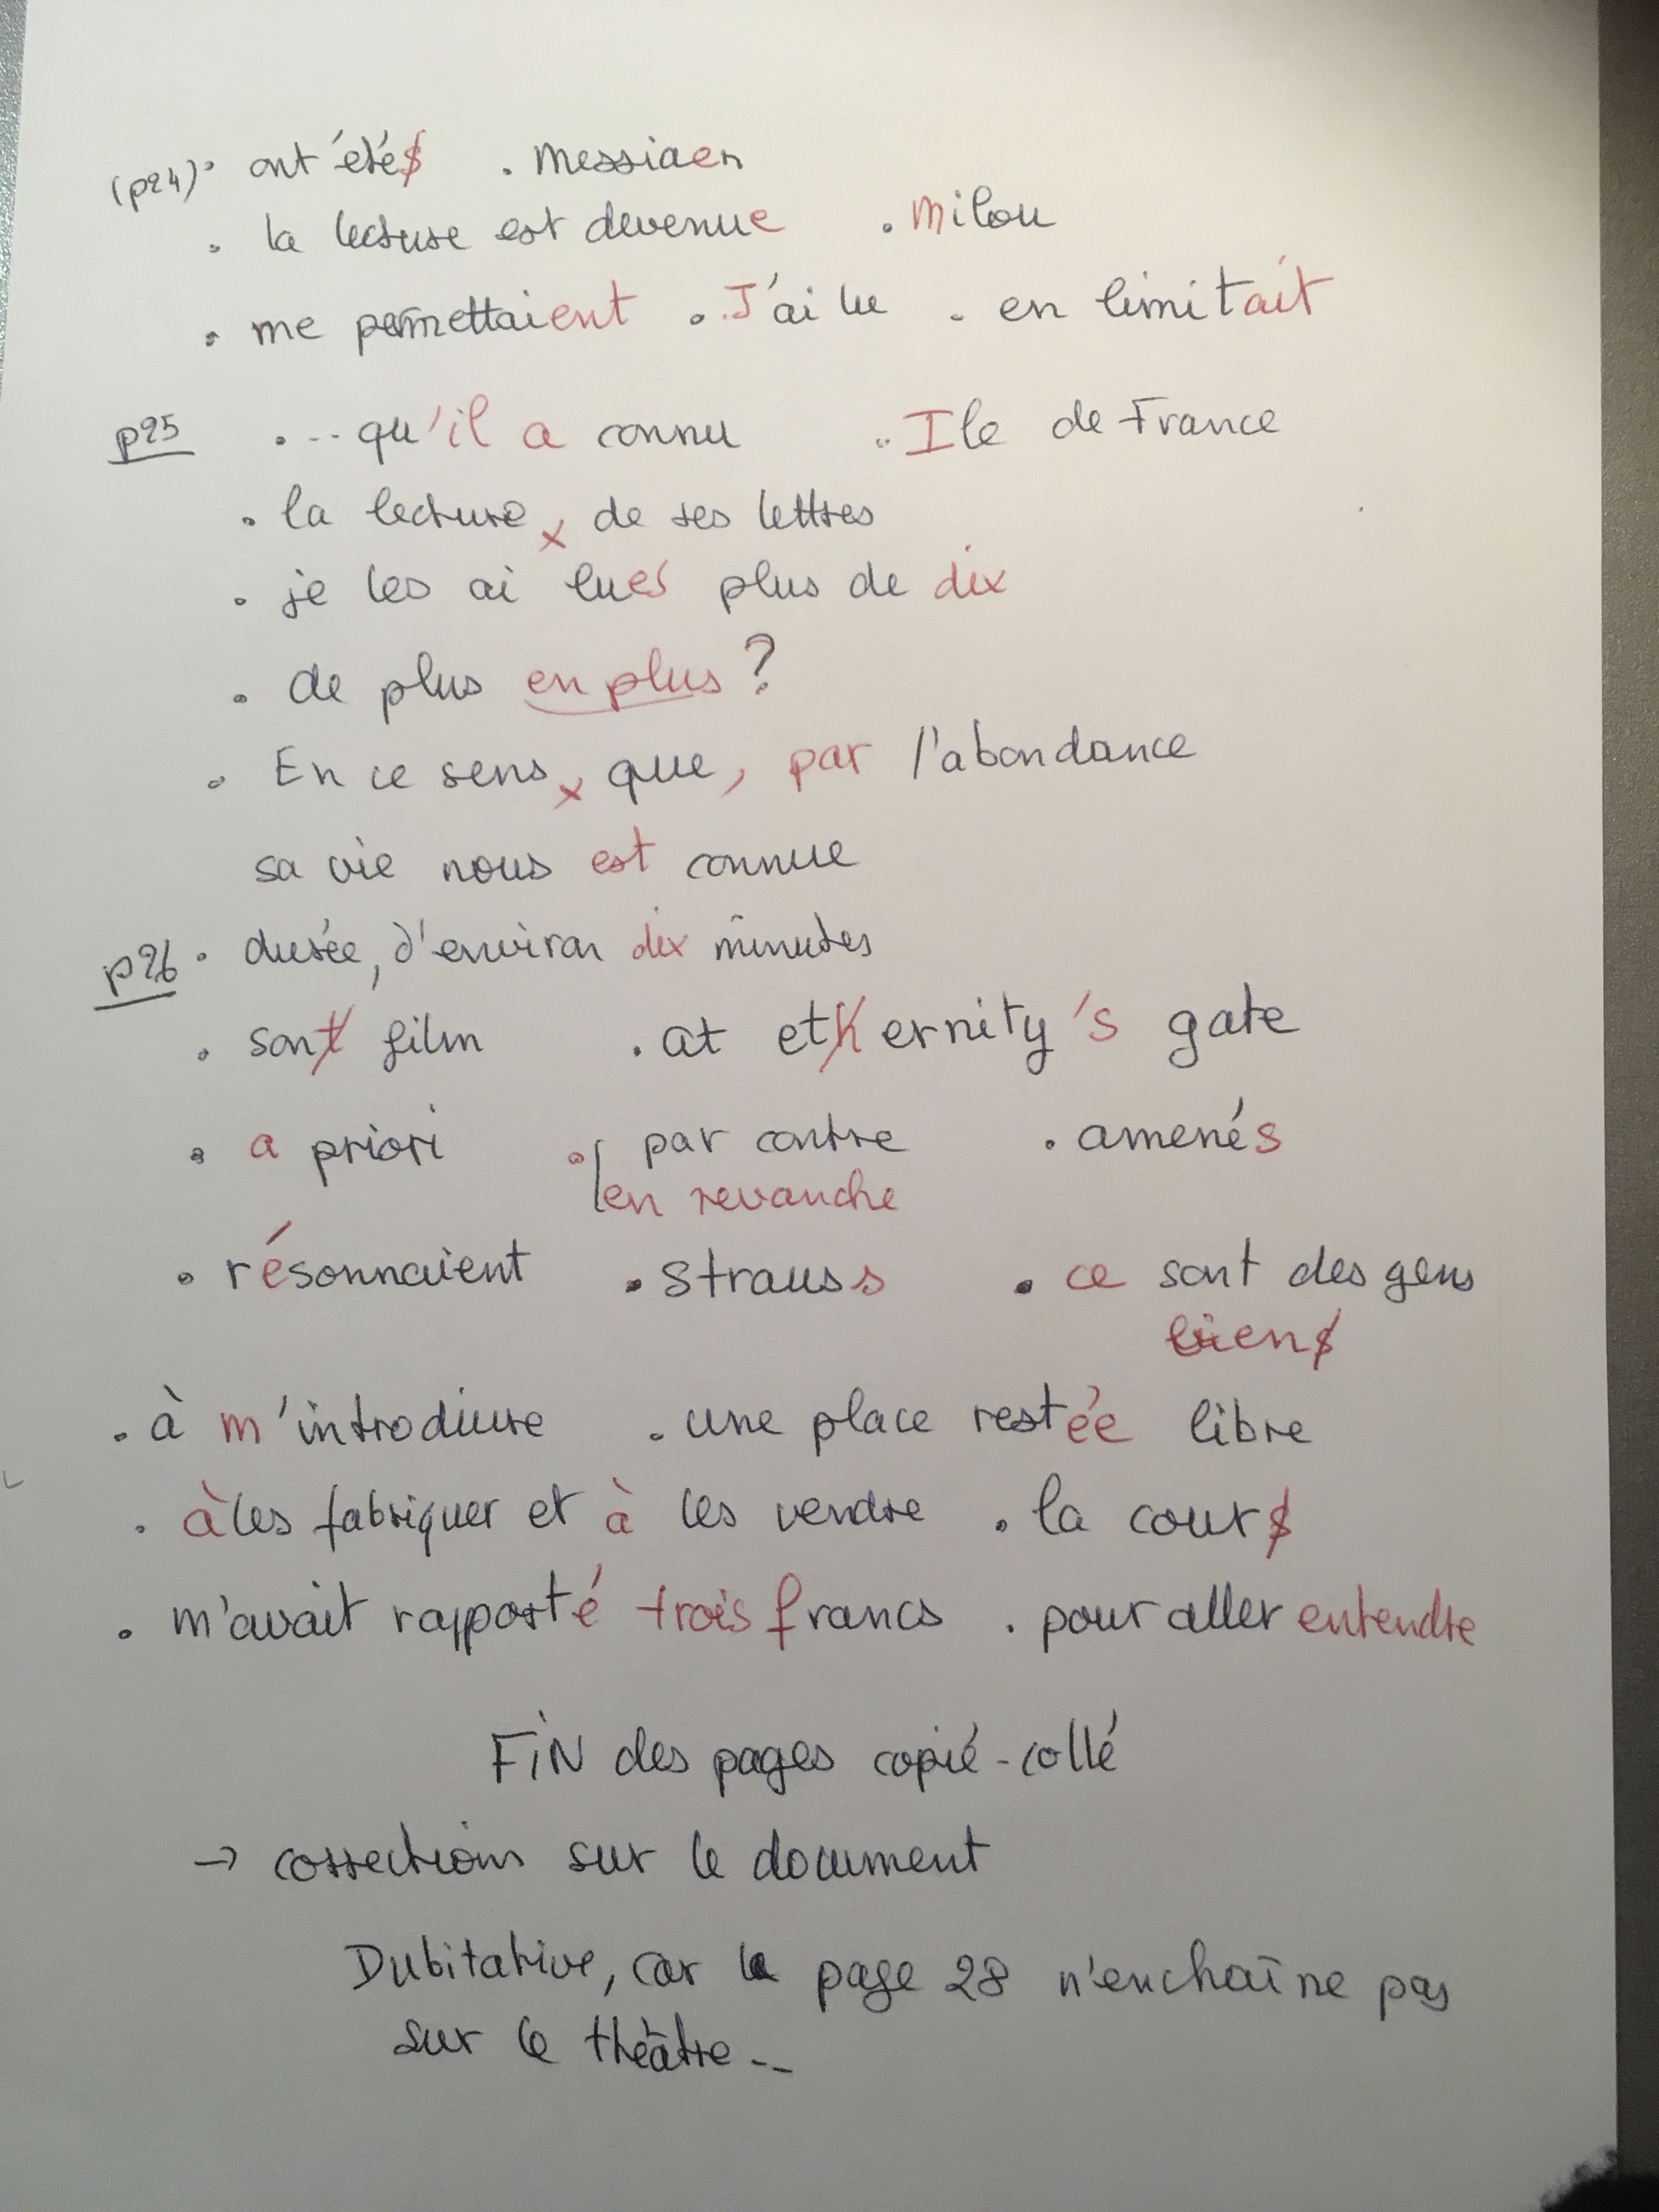 (p24) • ont étés • Messiaen
• la lecture est devenue • Milou
• me permettaient • J'ai lu • en limitait
p25 • ... qu'il a connu • Ile de France
• la lecture x de ses lettres
• je les ai lues plus de dix
• de plus en plus ?
• En ce sens x que, par l'abondance
sa vie nous est connue
p26 • durée, d'environ dix minutes
• sont film • at ethernity's gate
• a priori • par contre • amenés
en revanche
• résonnaient • Strauss • ce sont des gens
biens
• à m'introduire • une place restée libre
• à les fabriquer et à les vendre • la cours
• m'avait rapporté trois francs • pour aller entendre
FIN des pages copié-collé
→ corrections sur le document
Dubitative, car la page 28 n'enchaîne pas
sur le théâtre --